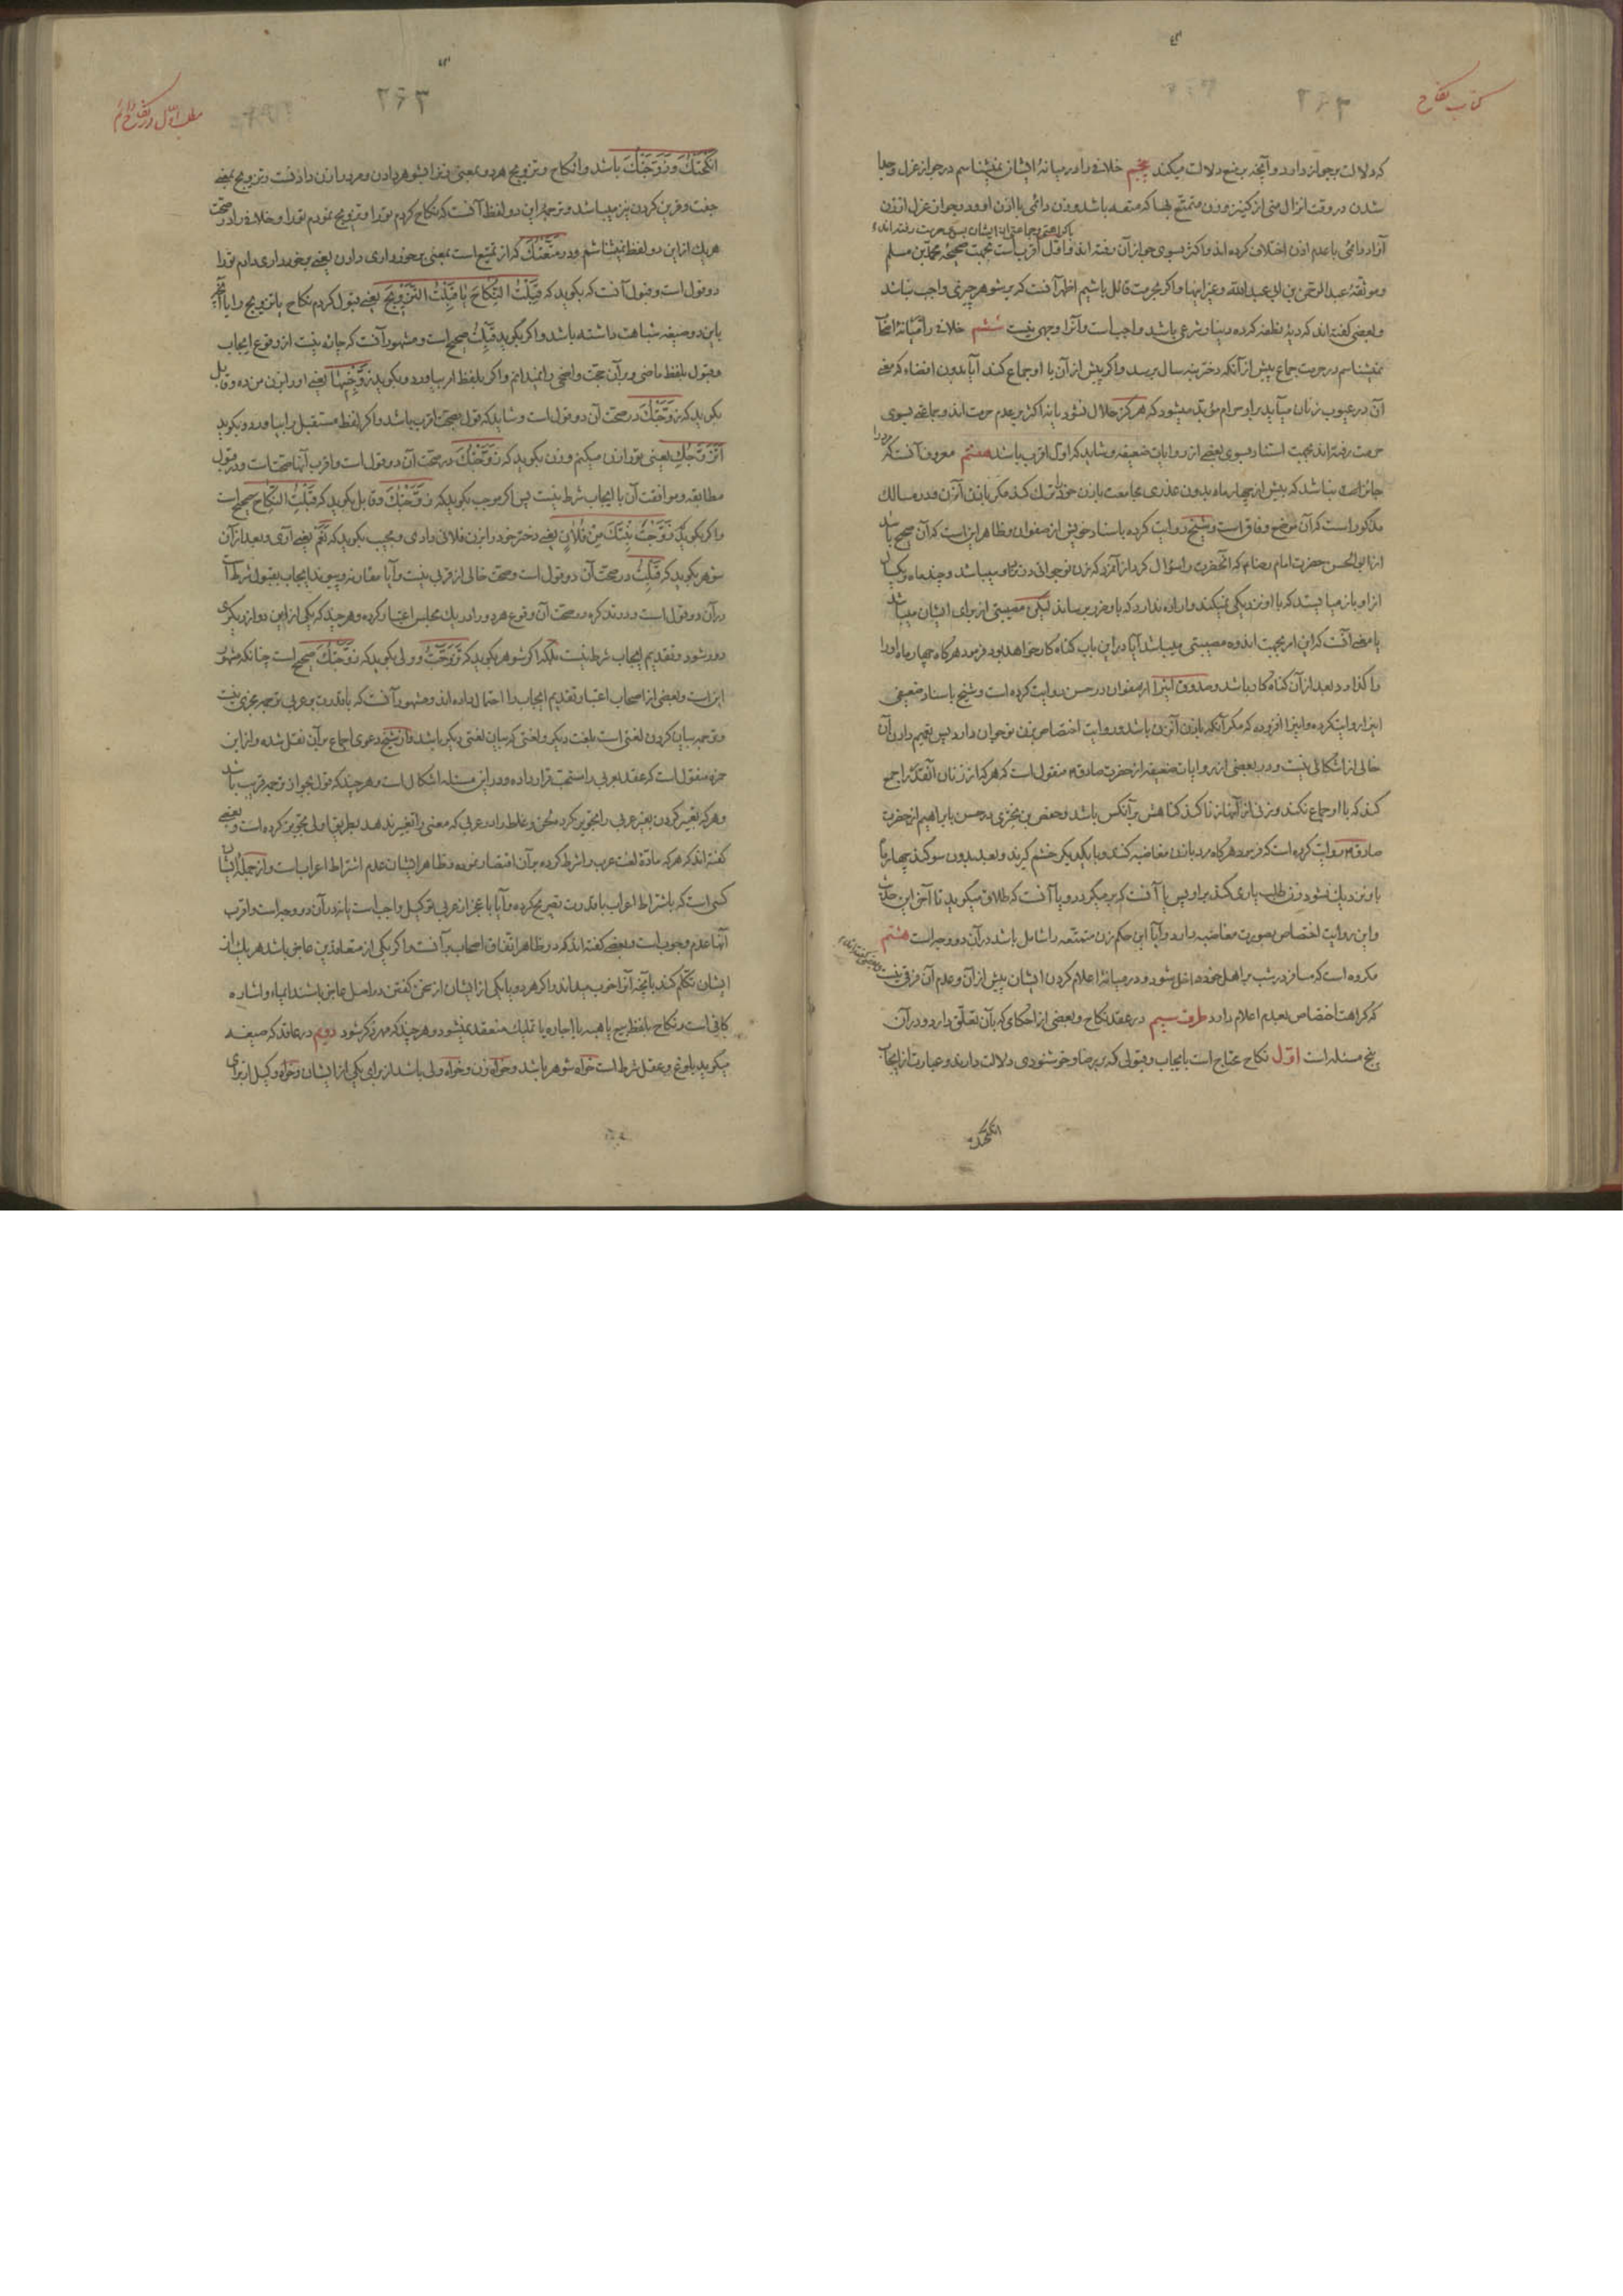 کتاب نکاح
۲۶۲
که دلالت بر جواز دارد و آنچه بر منع دلالت میکند پنجم خلافی را در میانهٔ ایشان نمیشناسم در جواز عزل و جدا
شدن در وقت انزال منی از کنیز و زن متمتع بها که متعه باشد و زن دائمی با اذن او و در جواز عزل از زن
آزاد دائمی با عدم اذن اختلاف کرده اند و اکثر بسوی جواز آن رفته اند
با کراهتی و جماعتی از ایشان بسوی حرمت رفته اند
و اول اقرب است بجهت صحیحهٔ محمد بن مسلم
و موثقهٔ عبد الرحمن بن ابی عبد الله و غیر اینها و اگر بحرمت قائل باشیم اظهر آنست که بر شوهر چیزی واجب نباشد
و بعضی گفته اند که دیهٔ نطفه که ده دینار شرعی باشد واجب است و آنرا وجهی نیست ششم خلافی را در میانهٔ اصحاب
نمیشناسم در حرمت جماع پیش از آنکه دختر بنه سال برسد و اگر پیش از آن با او جماع کند آیا بدون افضاء که معنی
آن در عیوب زنان میآید بر او حرام مؤبد میشود که هرگز حلال نشود یا نه اکثر بر عدم حرمت اند و جماعتی بسوی
حرمت رفته اند بجهت استناد بسوی بعضی از روایات ضعیفه و شاید که اول اقرب باشد هفتم معروف آنست که مرد را
جائز نباشد که بیش از چهار ماه بدون عذری مجامعت با زن خود را ترک کند مگر باذن آن زن و در مسالک
مذکور است که آن موضع وفاق است و شیخ روایت کرده باسناد خویش از صفوان و ظاهر این است که آن صحیح باشد
از ابو الحسن حضرت امام رضا که آنحضرت را سؤال کرد از آنمرد که زن نوجوانی در نزد او میباشد و چند ماه و یکسال
از او باز میایستد که با او نزدیکی نمیکند و اراده ندارد که باو ضرر برساند لیکن مصیبتی از برای ایشان میباشد
یا معنی آنست که این امر بجهت اندوه مصیبتی میباشد آیا در این باب گناه کار خواهد بود فرمود هر گاه چهار ماه او را
واگذارد بعد از آن گناه کار باشد و صدوق اینرا از صفوان در حسن روایت کرده است و شیخ باسناد ضعیفی
اینرا روایت کرده و اینرا افزوده که مگر آنکه باذن آن زن باشد و روایت اختصاص بزن نوجوان دارد پس تعمیم دادن آن
خالی از اشکالی نیست و در بعضی از روایات ضعیفه از حضرت صادق منقول است که هر که از زنان آنقدر را جمع
کند که با او جماع نکند و زنی از آنها زنا کند گناهش بر آنکس باشد و حفص بن بختری در حسن بابراهیم از حضرت
صادق روایت کرده است که فرمود هر گاه مرد با زن مغاضبه کند و با یکدیگر خشم گیرند و بعد بدون سوگند چهار ماه
باو نزدیک نشود و زن طلب یاری کند بر او پس یا آنست که بر میگردد و یا آنست که طلاق میگوید تا آخر این حدیث
و این روایت اختصاص بصورت مغاضبه دارد و آیا این حکم زن متمتعه را شامل باشد در آن دو وجه است هشتم
مکروه است که مسافر در شب بر اهل خود داخل شود و در میانهٔ اعلام کردن ایشان پیش از آن و عدم آن فرقی نیست و بعضی گفته اند
که کراهت اختصاص بعدم اعلام دارد طرف سیم در عقد نکاح و بعضی از احکامی که بآن تعلق دارد و در آن
پنج مسئله است اول نکاح محتاج است بایجاب و قبولی که بر رضا و خوشنودی دلالت دارند و عبارت از ایجاب
انکحتک
۲۶۳
مطلب اول در نکاح دائم
انکحتک و زوجتک باشد و انکاح و تزویج هر دو بمعنی زنرا بشوهر دادن و مرد را زن دادنست و تزویج بمعنی
جفت و قرین کردن نیز میباشد و ترجمهٔ این دو لفظ آنست که نکاح کردم تو را و تزویج نمودم تو را و خلافی را در صحت
هر یک از این دو لفظ نمیشناسم و در متعتک که از تمتیع است بمعنی برخورداری دادن یعنی برخورداری دادم تو را
دو قول است و قبول آنست که بگوید که قبلت النکاح یا قبلت التزویج یعنی قبول کردم نکاح یا تزویج را یا آنچه
باین دو صیغه شباهت داشته باشد و اگر بگوید قبلت صحیح است و مشهور آنست که چاره نیست از وقوع ایجاب
و قبول بلفظ ماضی و بر آن حجت واضحی را نمیدانم و اگر بلفظ امر بیاورد و بگوید زوجنیها یعنی او را بزن من ده و قابل
بگوید که زوجتک در صحت آن دو قول است و شاید که قول بصحت اقرب باشد و اگر لفظ مستقبل را بیاورد و بگوید
اتزوجک یعنی تو را زن میکنم و زن بگوید که زوجتک در صحت آن دو قول است و اقرب آنها صحت است و در قبول
مطابقه و موافقت آن با ایجاب شرط نیست پس اگر موجب بگوید که زوجتک و قابل بگوید که قبلت النکاح صحیح است
و اگر بگوید زوجت بنتک من فلان یعنی دختر خود را بزن فلانی دادی و مجیب بگوید که نعم یعنی آری و بعد از آن
شوهر بگوید که قبلت در صحت آن دو قول است و صحت خالی از قرب نیست و آیا مقارنه و پیوند ایجاب بقبول شرط است
در آن دو قول است و در تذکره در صحت آن وقوع هر دو را در یک مجلس اعتبار کرده و هر چند که یکی از این دو از دیگری
دور شود و تقدیم ایجاب شرط نیست بلکه اگر شوهر بگوید که تزوجت و ولی بگوید که زوجتک صحیح است چنانکه مشهور
این است و بعضی از اصحاب اعتبار تقدیم ایجاب را احتمال داده اند و مشهور آنست که با قدرت بر عربی ترجمه مجزی نیست
و ترجمه بیان کردن لغتی است بلغت دیگر و لغتی که بیان لغتی دیگر باشد و از شیخ دعوی اجماع بر آن نقل شده و از ابن
حمزه منقول است که عقد بعربی را مستحب قرار داده و در این مسئله اشکال است و هر چند که قول بجواز ترجمه قریب باشد
و هر که تعبیر کردن بغیر عربی را تجویز کرد لحن و غلط را در عربی که معنی را تغییر ندهد بطریق اولی تجویز کرده است و بعضی
گفته اند که هر که مادهٔ لغت عرب را شرط کرده بر آن اقتصار نموده و ظاهر ایشان عدم اشتراط اعراب است و از جملهٔ ایشان
کسی است که باشتراط اعراب با قدرت تصریح کرده و آیا با عجز از عربی توکیل واجب است یا نه در آن دو وجه است و اقرب
آنها عدم وجوب است و بعضی گفته اند که در ظاهر اتفاق اصحاب بر آنست و اگر یکی از متعاقدین عاجز باشد هر یک از
ایشان تکلم کند بآنچه آنرا خوب میداند و اگر هر دو یا یکی از ایشان از سخن گفتن در اصل عاجز باشند ایماء و اشاره
کافی است و نکاح بلفظ بیع یا هبه یا اجاره یا تملیک منعقد نمیشود و هر چند که مهر ذکر شود دویم در عاقد که صیغه
میگوید بلوغ و عقل شرط است خواه شوهر باشد و خواه زن و خواه ولی باشد از برای یکی از ایشان و خواه وکیل از برای